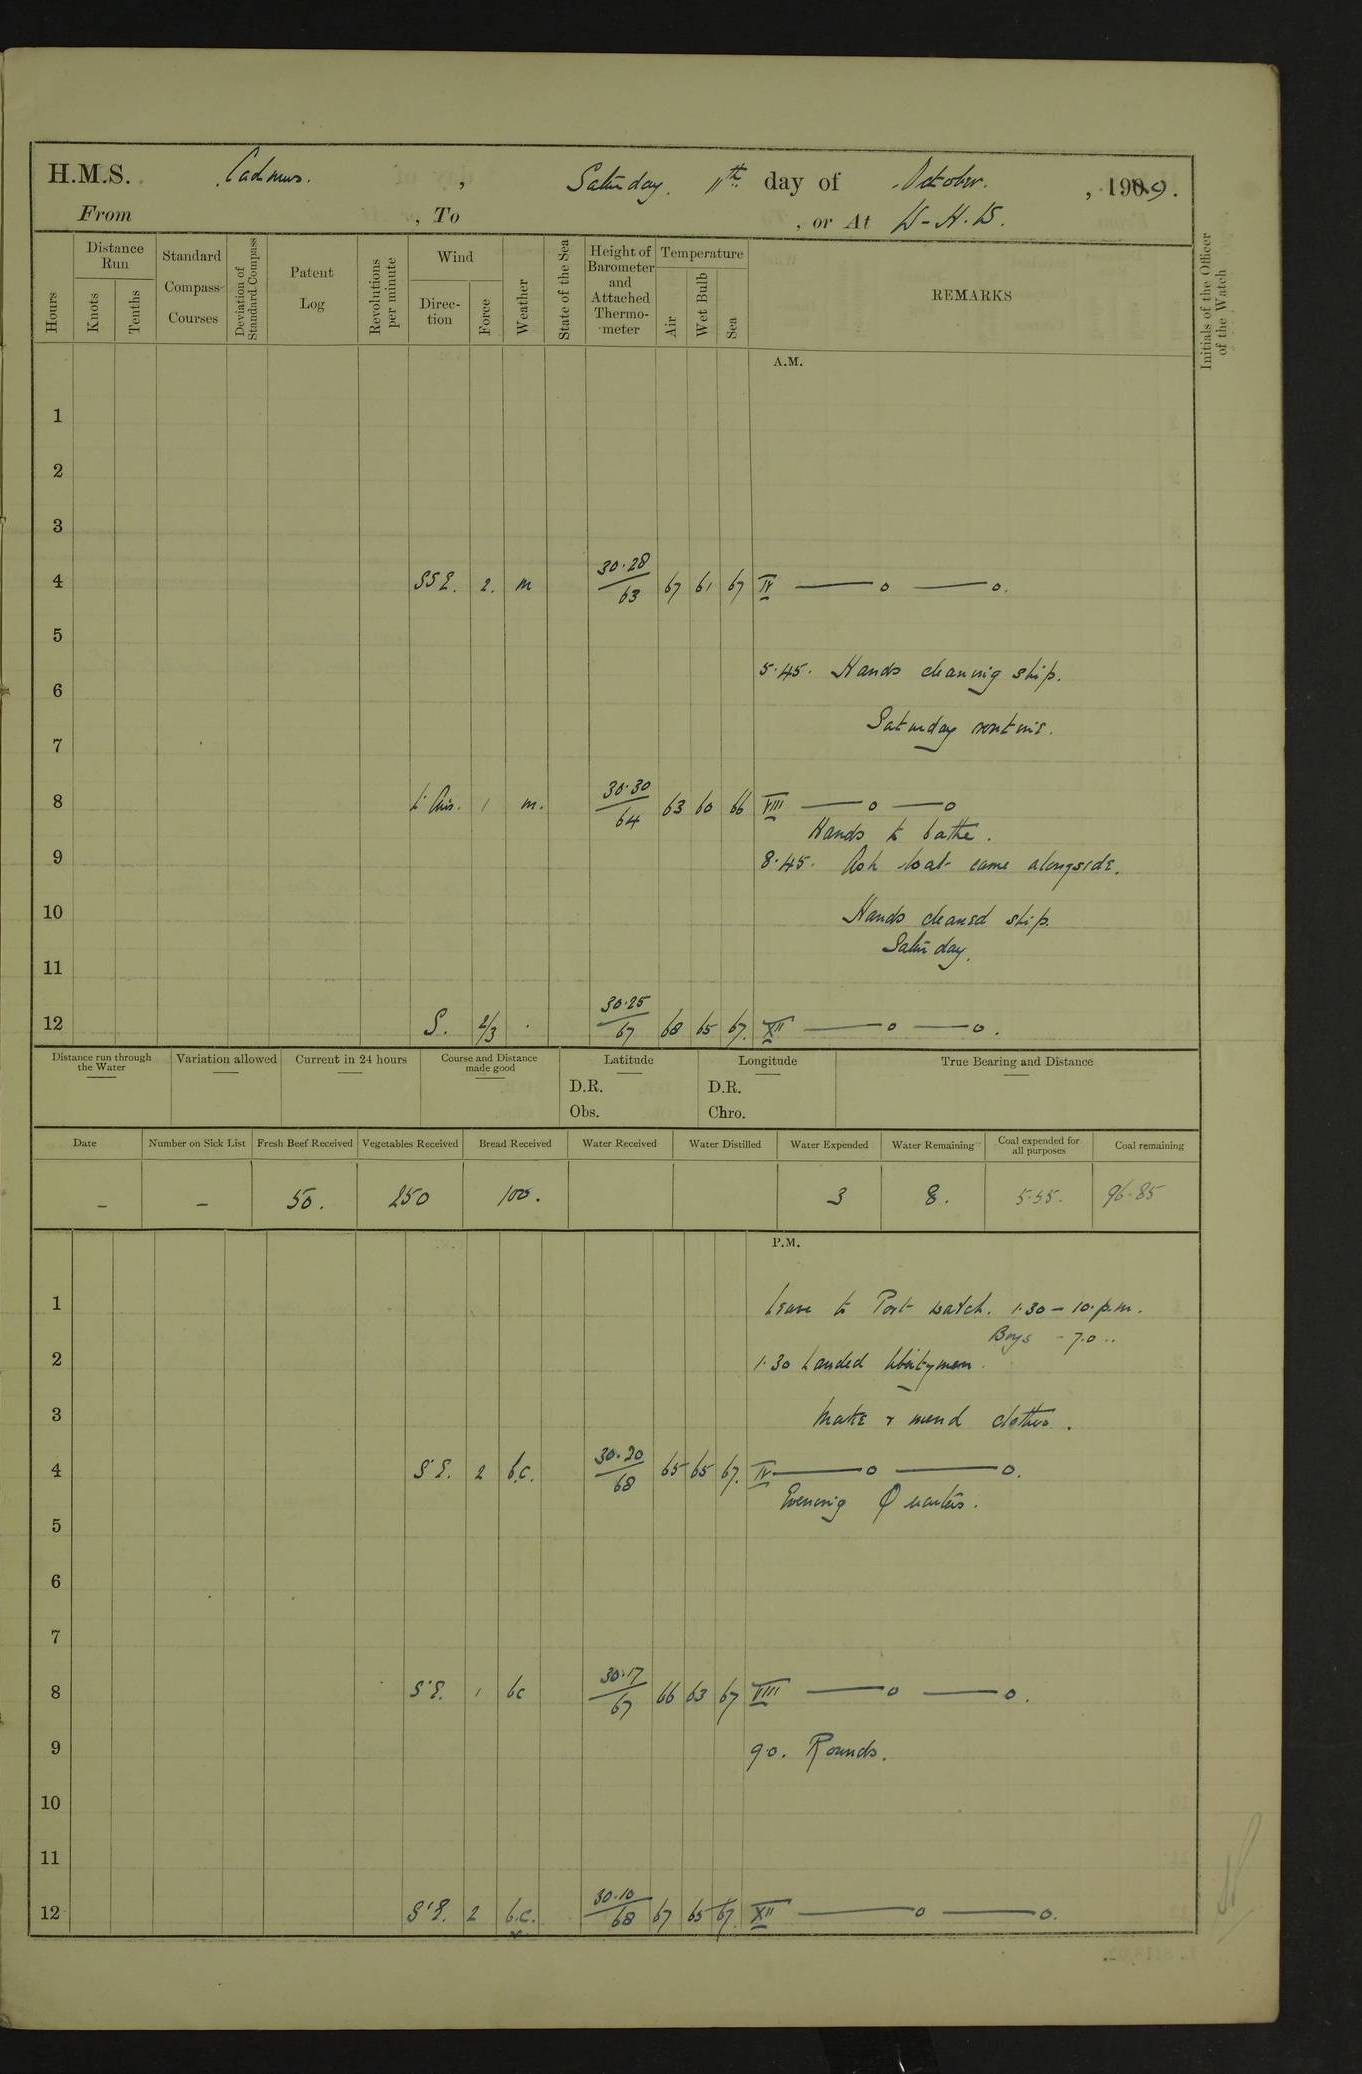 H.M.S. Cadmus. , Saturday. 11th day of October. , 1909.
From , To , or At W-H-W.
Hours
Distance Run
Knots
Tenths
Standard Compass Courses
Deviation of Standard Compass
Patent Log
Revolutions per minute
Wind
Direction
Force
Weather
State of the Sea
Height of Barometer and Attached Thermometer
Temperature
Air
Wet Bulb
Sea
REMARKS
Initials of the Officer of the Watch
A.M.
1
2
3
4 SSE. 2. m 30.28/63 67 61 67 IV —— o —— o.
5
5.45. Hands cleaning ship.
6
Saturday routine.
7
8 Lt Airs. 1 m. 30.30/64 63 60 66 VIII —— o —— o
Hands to bathe.
9 8.45. Ash boat came alongside.
10 Hands cleaned ship.
Saturday.
11
12 S. 2/3 . 30.25/67 68 65 67. XII —— o —— o.
Distance run through the Water
Variation allowed
Current in 24 hours
Course and Distance made good
Latitude
D.R.
Obs.
Longitude
D.R.
Chro.
True Bearing and Distance
Date Number on Sick List Fresh Beef Received Vegetables Received Bread Received Water Received Water Distilled Water Expended Water Remaining Coal expended for all purposes Coal remaining
- - 50. 250 100. 3 8. 5.55. 96.85
P.M.
1 Leave to Port watch. 1.30 - 10. p.m.
Boys - 7.0 ..
2 1.30 Landed libertymen.
3 Make & mend clothes.
4 S'E. 2 b.c. 30.20/68 65 65 67. IV —— o —— o.
Evening Quarters.
5
6
7
8 S'E. 1 bc 30.17/67 66 63 67 VIII —— o —— o.
9 9.0. Rounds.
10
11
12 S'E. 2 b.c. 30.10/68 67 65 67. XII —— o —— o.